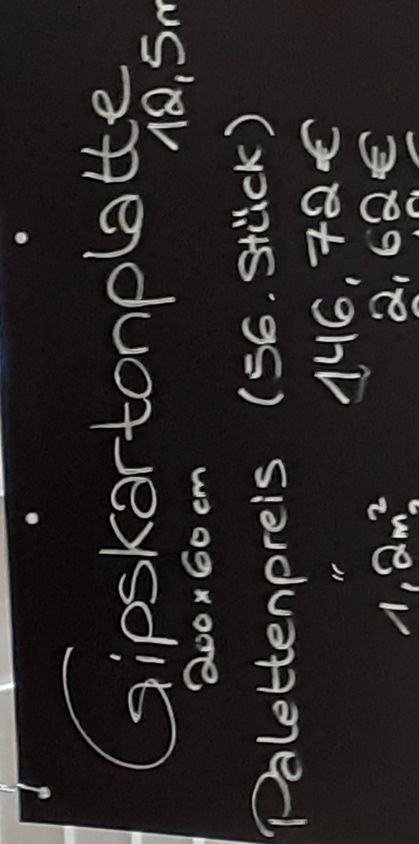 Gipskartonplatte
200x60cm 12,5m
Palettenpreis (56. Stück)
" 146,72€
1,2m² 2,62€